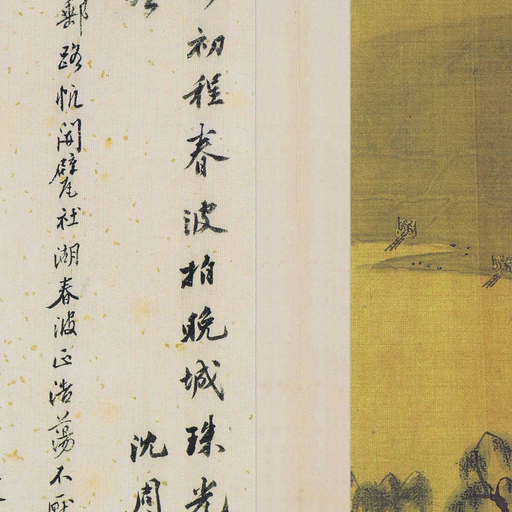 初程春波拍晚城珠光
沈周
鄴路忼開甓社湖春波正浩蕩不厭